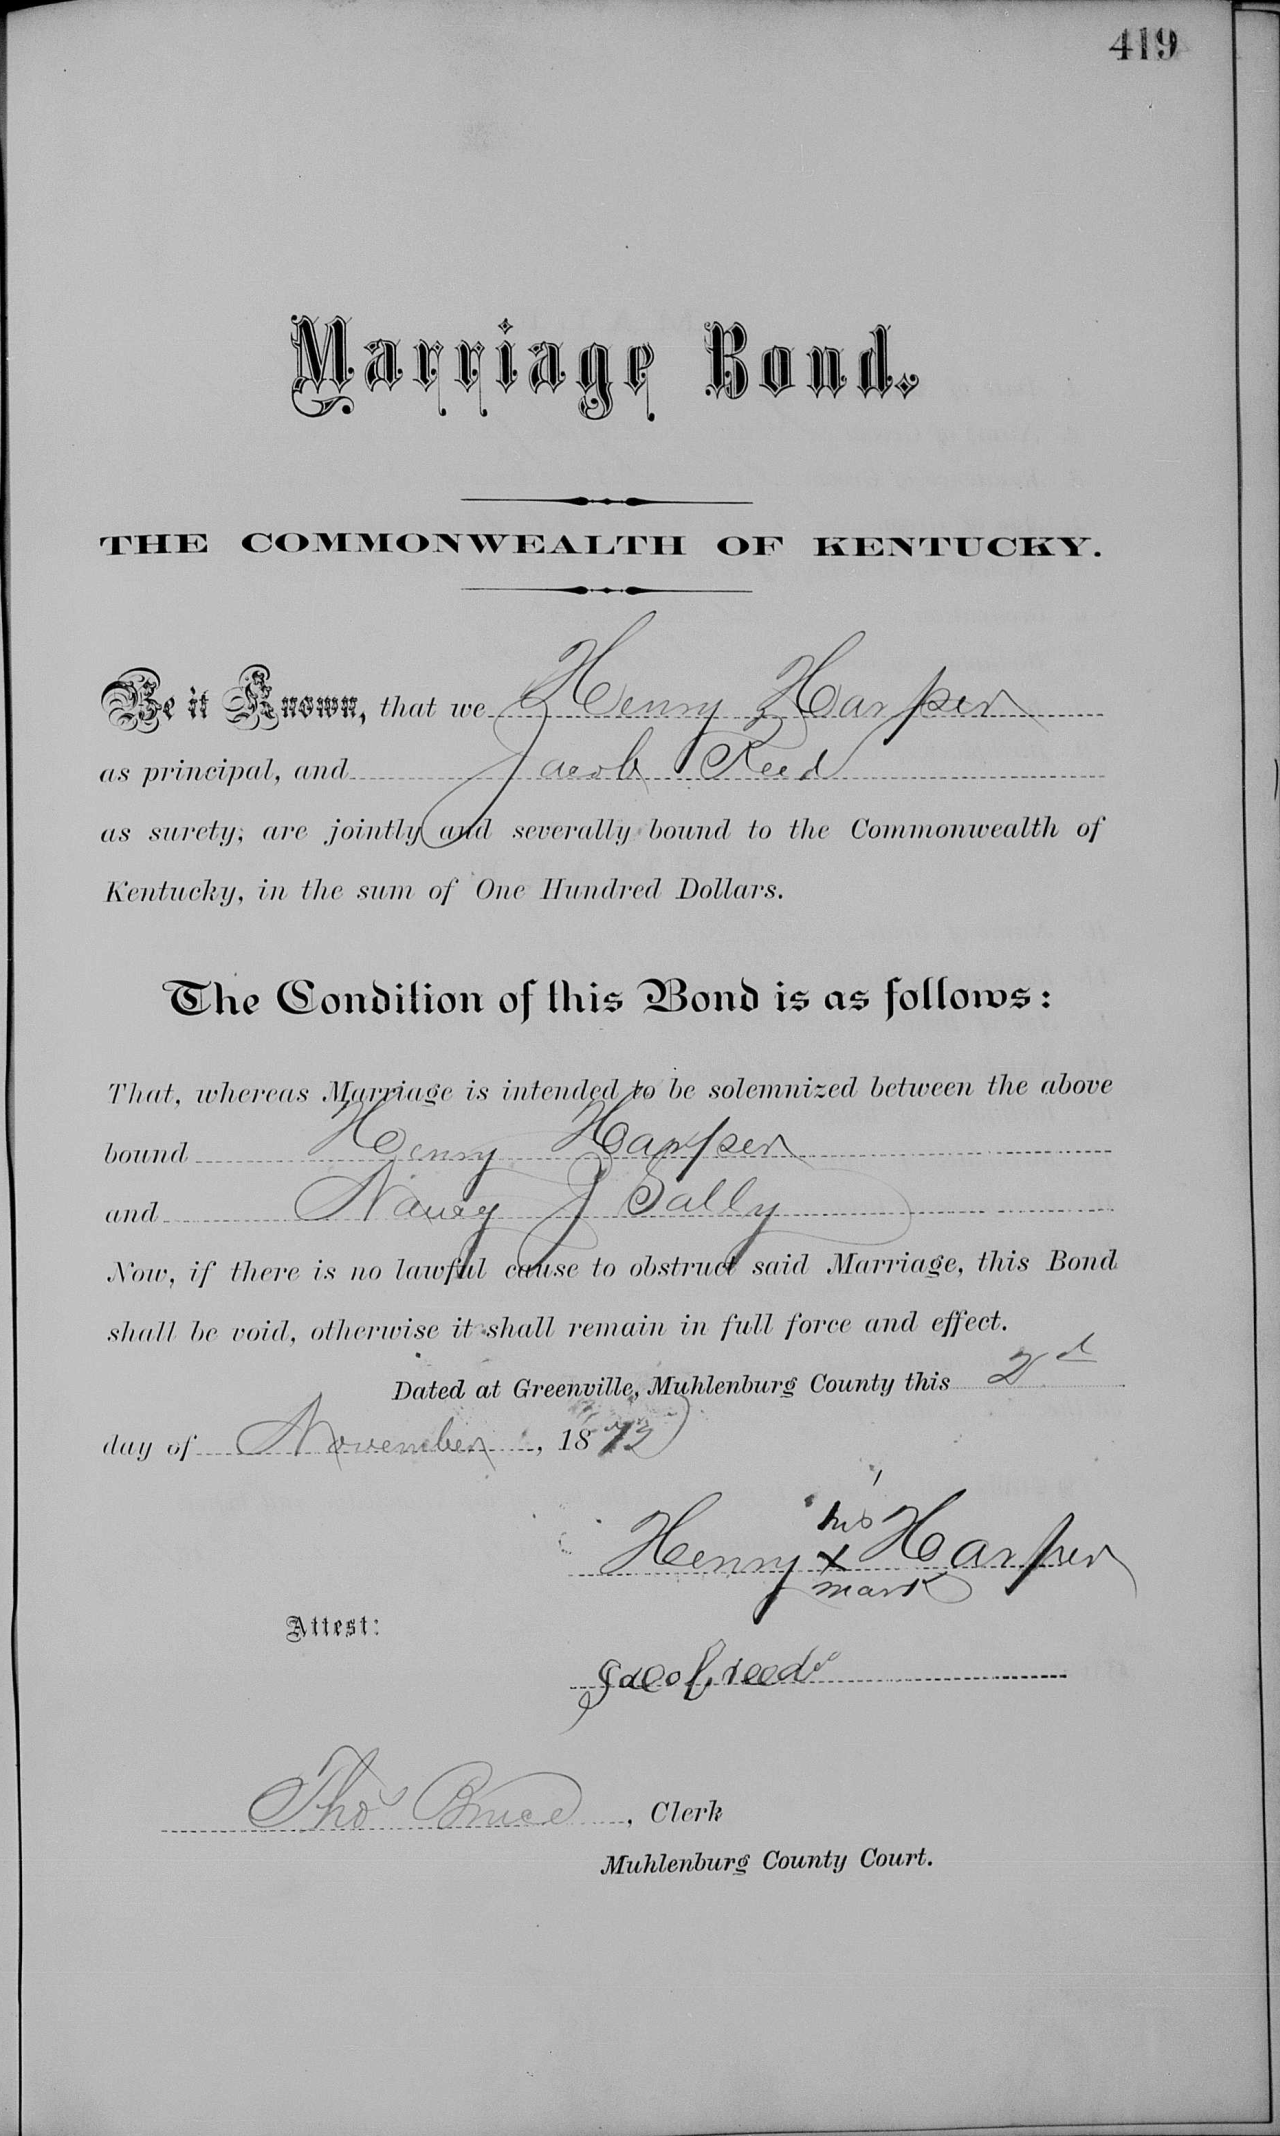 419
Marriage Bond.
THE COMMONWEALTH OF KENTUCKY.
Be it Known, that we Henry Harper
as principal, and Jacob Reed
as surety, are jointly and severally bound to the Commonwealth of
Kentucky, in the sum of One Hundred Dollars.
The Condition of this Bond is as follows:
That, whereas Marriage is intended to be solemnized between the above
bound Henry Harper
and Nancy J Sally
Now, if there is no lawful cause to obstruct said Marriage, this Bond
shall be void, otherwise it shall remain in full force and effect.
Dated at Greenville, Muhlenburg County this 2d
day of November, 1872
his
Henry X Harper
mark
Attest:
Jacob reed
Thos Bruce, Clerk
Muhlenburg County Court.